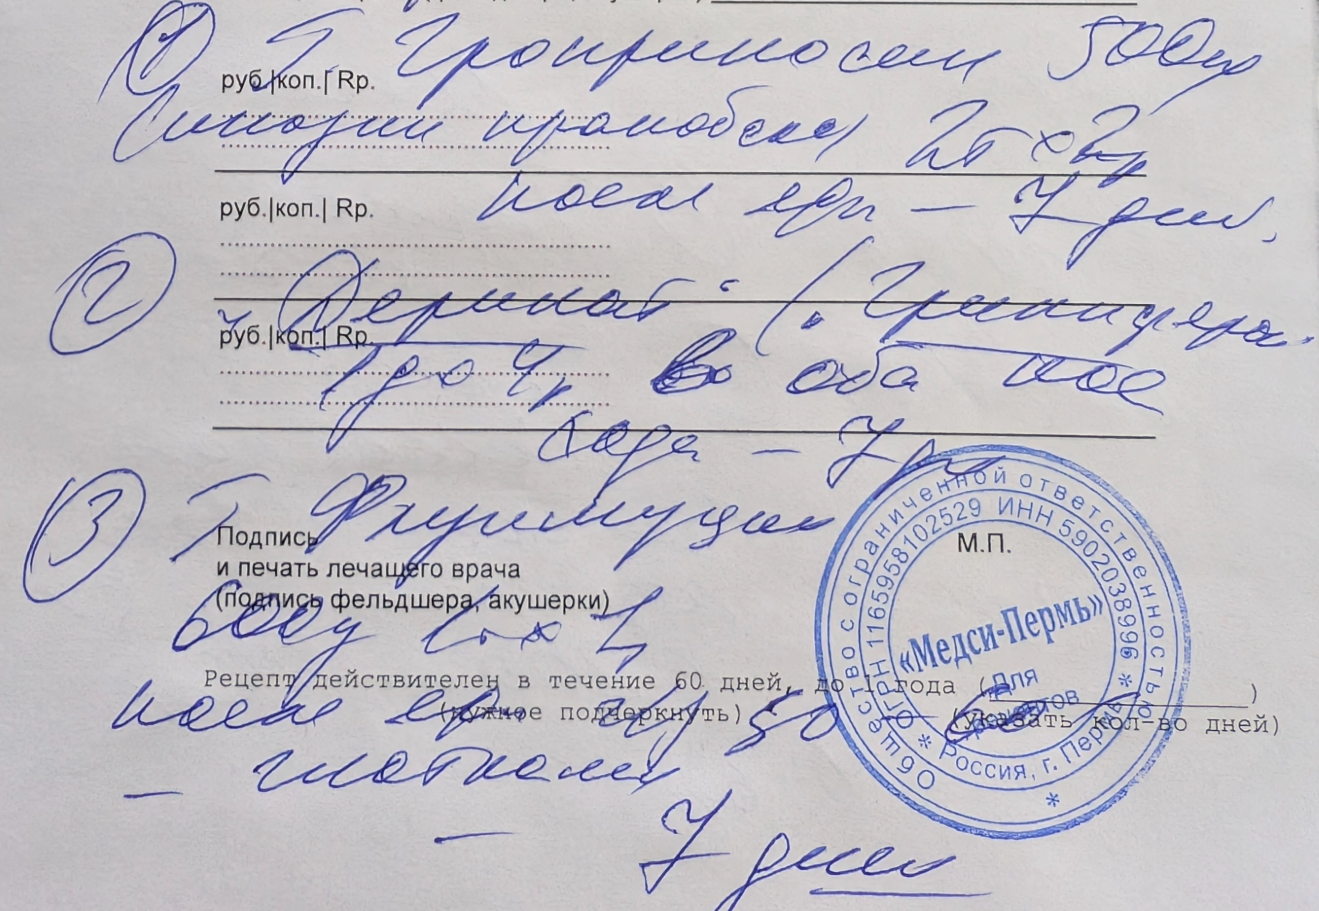 ① Т. Гроприносин 500мг
руб.|коп.| Rp.
(инозин пранобекс) 2т х 2р
после еды – 7 дней.
руб.|коп.| Rp.
② Деринат (Гриппферон
руб.|коп.| Rp.
1д х 4р во оба носо
хода – 7 дн
③ Т. Флуимуцил
Подпись
и печать лечащего врача
(подпись фельдшера, акушерки)
М.П.
600мг 1т х 1
Рецепт действителен в течение 60 дней, до 1 года (
)
(нужное подчеркнуть)
(указать кол-во дней)
после еды 50
– глотками
– 7 дней
Общество с ограниченной ответственностью
ОГРН 1165958102529 ИНН 5902038996
«Медси-Пермь»
Для рецептов
* Россия, г. Пермь *